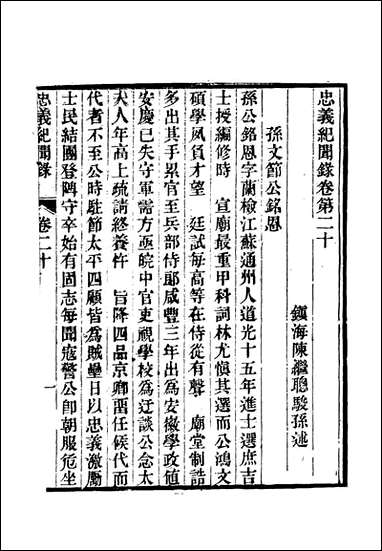 忠義紀聞錄卷第二十
鎮海陳繼聰駿孫述
孫文節公銘恩
孫公銘恩字蘭檢江蘇通州人道光十五年進士選庶吉
士授編修時　宣廟最重甲科詞林尤慎其選而公鴻文
碩學夙負才望　廷試每高等在侍從有聲　廟堂制誥
多出其手累官至兵部侍郞咸豐三年出爲安徽學政値
安慶已失守軍需方亟皖中官吏視學校爲迂談公念太
夫人年高上疏請終養忤　旨降四品京卿留任候代而
代者不至公時駐節太平四顧皆爲賊壘日以忠義激厲
士民結團登陴守卒始有固志每聞寇警公卽朝服危坐
忠義紀聞錄　卷二十　一